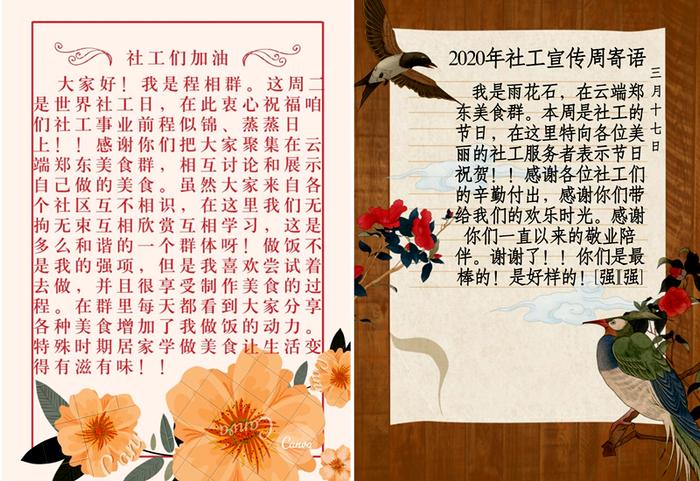 社工们加油
大家好！我是程相群。这周二
是世界社工日，在此衷心祝福咱
们社工事业前程似锦、蒸蒸日
上！！感谢你们把大家聚集在云
端郑东美食群，相互讨论和展示
自己做的美食。虽然大家来自各
个社区互不相识，在这里我们无
拘无束互相欣赏互相学习，这是
多么和谐的一个群体呀！做饭不
是我的强项，但是我喜欢尝试着
去做，并且很享受制作美食的过
程。在群里每天都看到大家分享
各种美食增加了我做饭的动力。
特殊时期居家学做美食让生活变
得有滋有味！！
Canva
Canva
Canva
2020年社工宣传周寄语
三月十七日
我是雨花石，在云端郑
东美食群。本周是社工的
节日，在这里特向各位美
丽的社工服务者表示节日
祝贺！！感谢各位社工们
的辛勤付出，感谢你们带
给我们的欢乐时光。感谢
你们一直以来的敬业陪
伴。谢谢了！！你们是最
棒的！是好样的！[强][强]